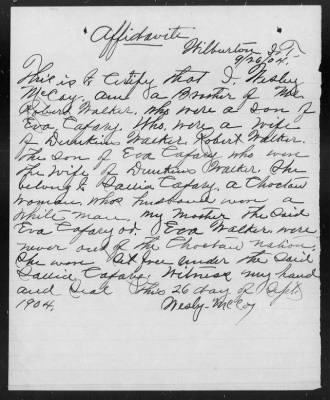 Affidavite
Wilburton I.T.
9/26/04.
This is to certify that I. Wesley
McCoy. am a Brother of Mr
Robert Walker. who were a son of
Eva Cafary. Who were a wife
of Dunkins Walker. Robert Walker.
the son of Eva Cafary who were
the wife of Dunkins Walker. She
belong to Sallia Cafary, a Choctaw
woman, whos husband were a
white man, my Mother the Said
Eva Cafary or. Eva Walker, were
never out of the Choctaw nation.
She were Set free under the Said
Sallia Cafary. Witness my hand
and Seal This 26 day of Sept
1904. Wesly McCoy